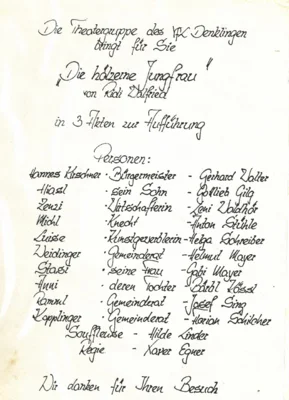 Die Theatergruppe des VfL Denklingen
bringt für Sie
„Die hölzerne Jungfrau"
von Ridi Walfried
in 3 Akten zur Aufführung
Personen:
Hannes Kirschner - Bürgermeister - Gerhard Walter
Hiasl - sein Sohn - Gottlieb Gilg
Zenzi - Wirtschafterin - Leni Waldhör
Michl - Knecht - Anton Stühle
Luisse - Kunstgewerblerin - Helga Schreiber
Weidinger - Gemeinderat - Helmut Mayer
Stassi - seine Frau - Gabi Mayer
Anni - deren Tochter - Bärbl
Gemeinderat - Josef Sing
Kopplinger - Gemeinderat - Florian Schilcher
Souffleuse - Hilde Linder
Regie - Xaver Egner
Wir danken für Ihren Besuch